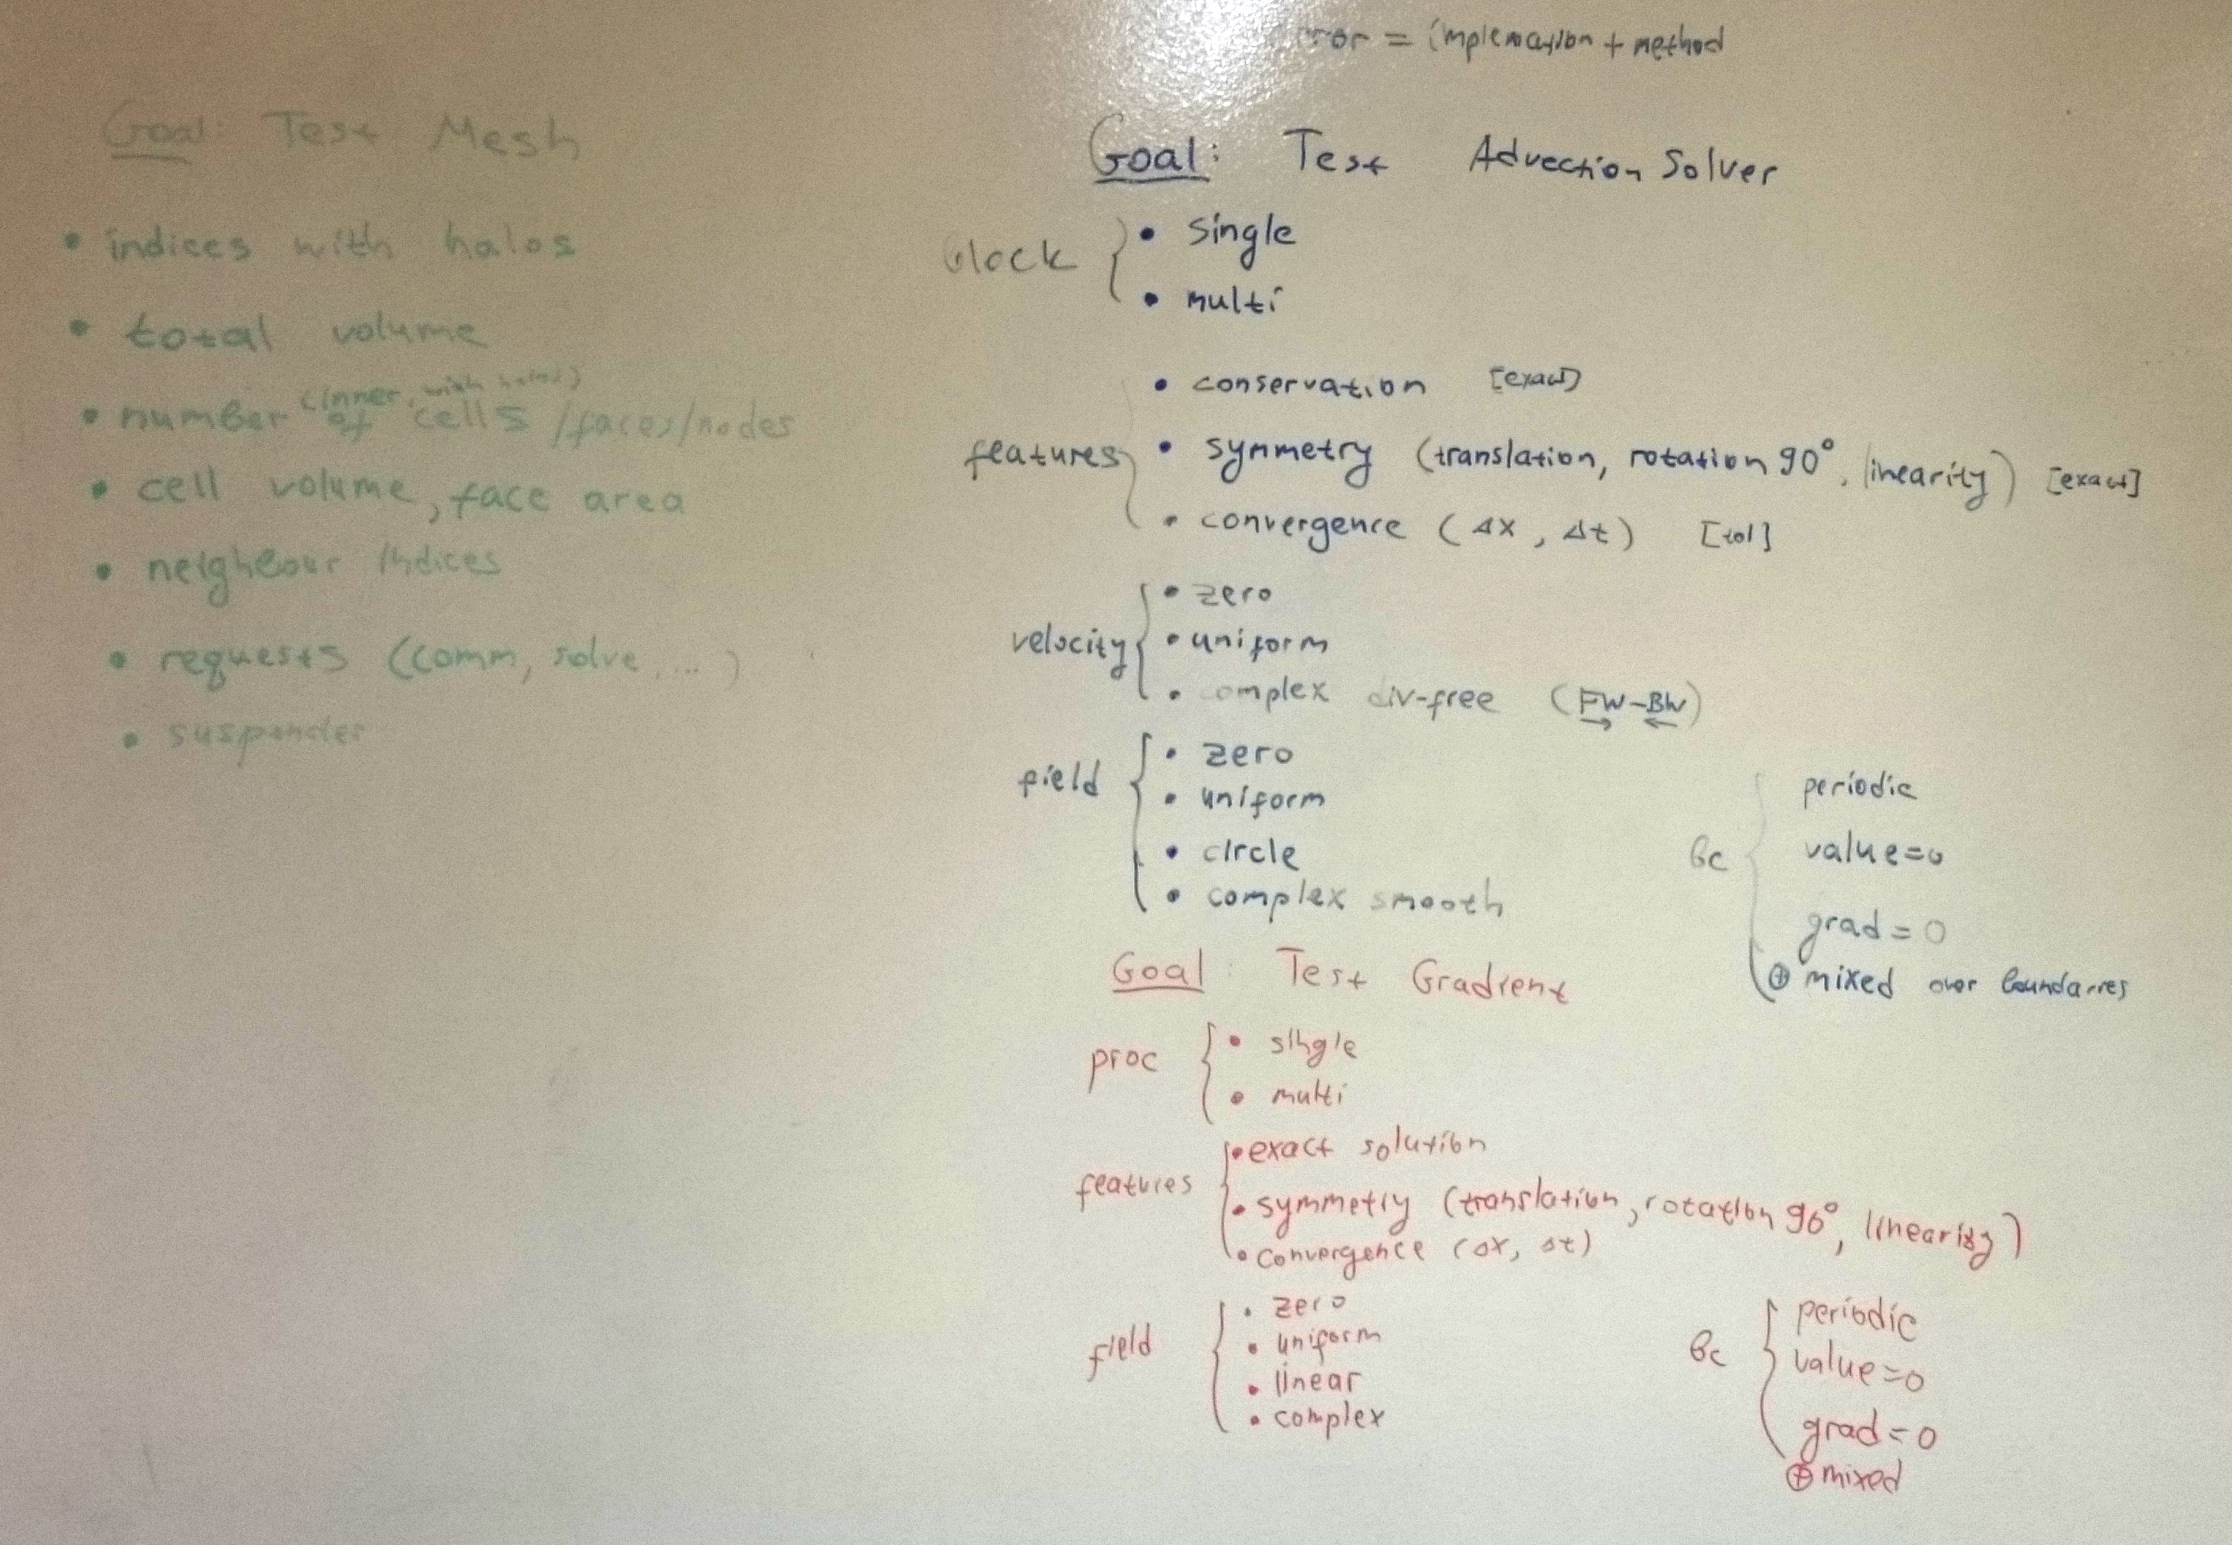 = implemocation + method
Goal: Test Mesh
• indices with halos
• total volume
(inner, with halos)
• number of cells /faces/nodes
• cell volume, face area
• neighbour indices
• requests (comm, solve, ... )
• suspender
Goal: Test Advection Solver
block { • single
• multi
features { • conservation [exact]
• symmetry (translation, rotation 90°, linearity) [exact]
• convergence (Δx, Δt) [tol]
velocity { • zero
• uniform
• complex div-free (FW-BW)
field { • zero
• uniform
• circle
• complex smooth
bc { periodic
value=0
grad=0
⊕ mixed over boundarres
Goal: Test Gradient
proc { • single
• multi
features { • exact solution
• symmetry (translation, rotation 90°, linearity)
• convergence (Δx, Δt)
field { • zero
• uniform
• linear
• complex
bc { periodic
value=0
grad=0
⊕ mixed